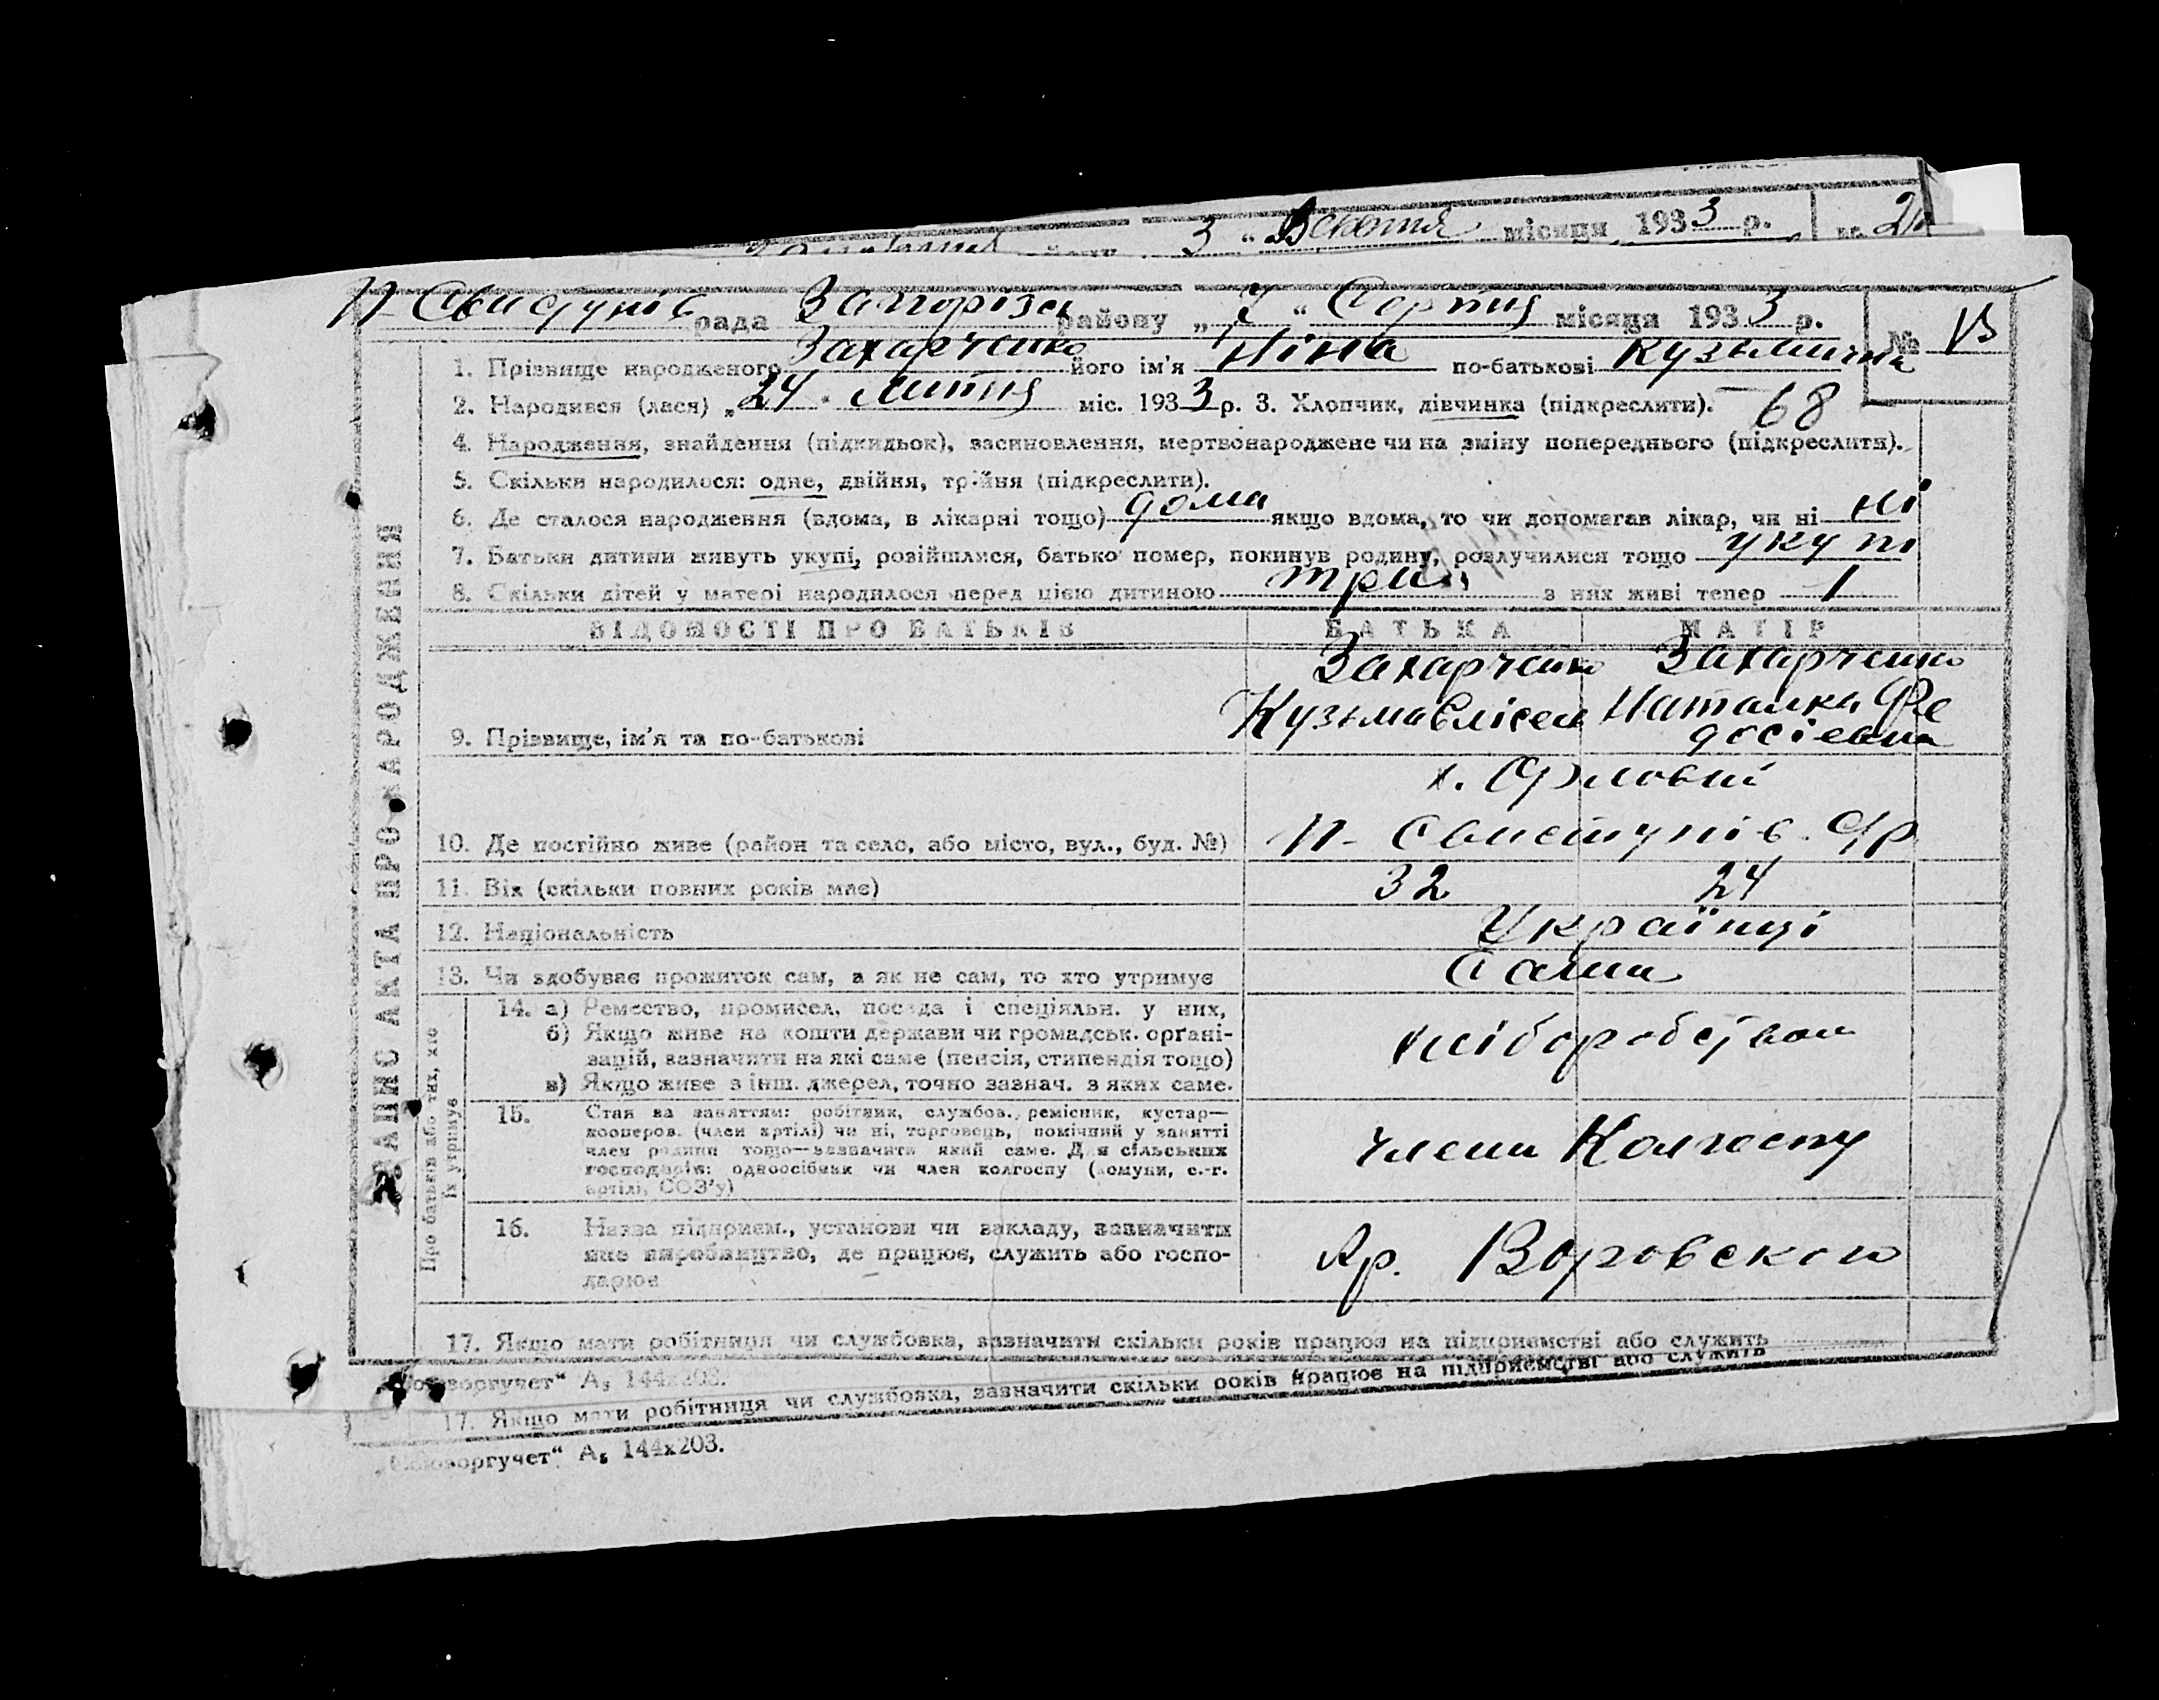 3 " місяця 1933 р.
Н-Свистунів рада Запорізь району „ 7 " Серпня місяця 1933 р.
№ 13
1. Прізвище народженого Захарченко його ім'я Ніна по-батькові Кузьмична
2. Народився (лася) „24" липня міс. 1933 р. 3. Хлопчик, дівчинка (підкреслити). 68
4. Народження, знайдення (підкидьок), засиновлення, мертвонароджене чи на зміну попереднього (підкреслити).
5. Скільки народилося: одне, двійня, трійня (підкреслити).
6. Де сталося народження (вдома, в лікарні тощо) дома якщо вдома, то чи допомагав лікар, чи ні ні
7. Батьки дитини живуть укупі, розійшлися, батько помер, покинув родину, розлучилися тощо укупі
8. Скільки дітей у матері народилося перед цією дитиною три з них живі тепер 1
ЗАПИС АКТА ПРО НАРОДЖЕННЯ
ВІДОМОСТІ ПРО БАТЬКІВ БАТЬКА МАТІР
Захарченко Захарченко
Кузьма Єлісев Наталка Фе
досіевна
9. Прізвище, ім'я та по-батькові
х. Орловий
10. Де постійно живе (район та село, або місто, вул., буд. №) Н-Свистунів. С/р
11. Вік (скільки повних років має) 32 24
12. Національність Українці
13. Чи здобуває прожиток сам, а як не сам, то хто утримує Сами
Про батьків або тих, хто
їх утримує
14. а) Ремество, промисел, посада і спеціяльн. у них,
б) Якщо живе на кошти держави чи громадськ. орґані-
зацій, зазначити на які саме (пенсія, стипендія тощо)
в) Якщо живе з інш. джерел, точно зазнач. з яких саме.
хліборобством
15. Стан за заняттям: робітник, службов., ремісник, кустар—
кооперов. (член артілі) чи ні, торговець, помічний у занятті
член родини тощо—зазначити який саме. Для сільських
господарів: одноосібник чи член колгоспу (комуни, с.-г.
артілі, СОЗ'у)
члени Колгоспу
16. Назва підприєм., установи чи закладу, зазначити
яке виробництво, де працює, служить або госпо-
дарює
Ар. Воровского
17. Якщо мати робітниця чи службовка, зазначити скільки років працює на підприємстві або служить
„Союзоргучет" А₅ 144х203.
17. Якщо мати робітниця чи службовка, зазначити скільки років працює на підприємстві або служить
„Союзоргучет" А₅ 144х203.